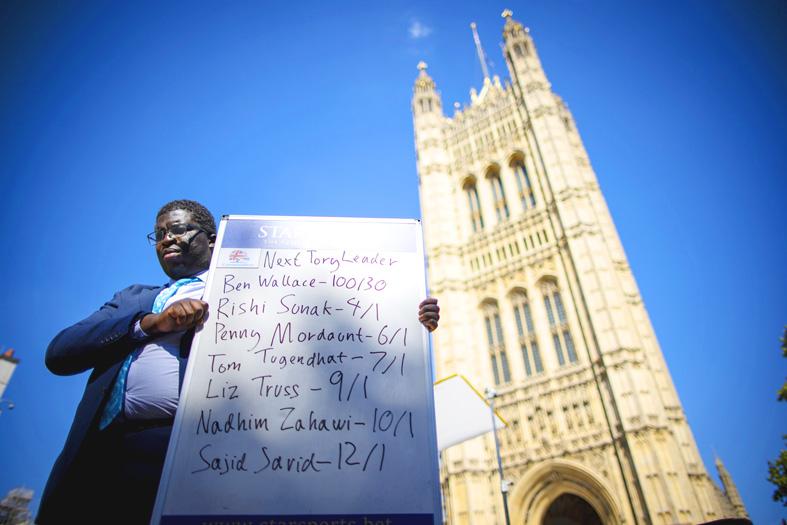 STAR
Next Tory Leader
Ben Wallace - 100/30
Rishi Sunak - 4/1
Penny Mordaunt - 6/1
Tom Tugendhat - 7/1
Liz Truss - 9/1
Nadhim Zahawi - 10/1
Sajid Savid - 12/1
www.starsports.bet